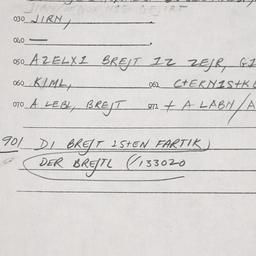 030 JIRN,
040 —
050 AZELXI BREJT IZ ZEJR, GI
060 KIML, 061 CTERNISTKL
070 A LEBL, BREJT 071 + A LABN/A
901 DI BREJT ISTEN FARTIK,
DER BREJTL (/133020